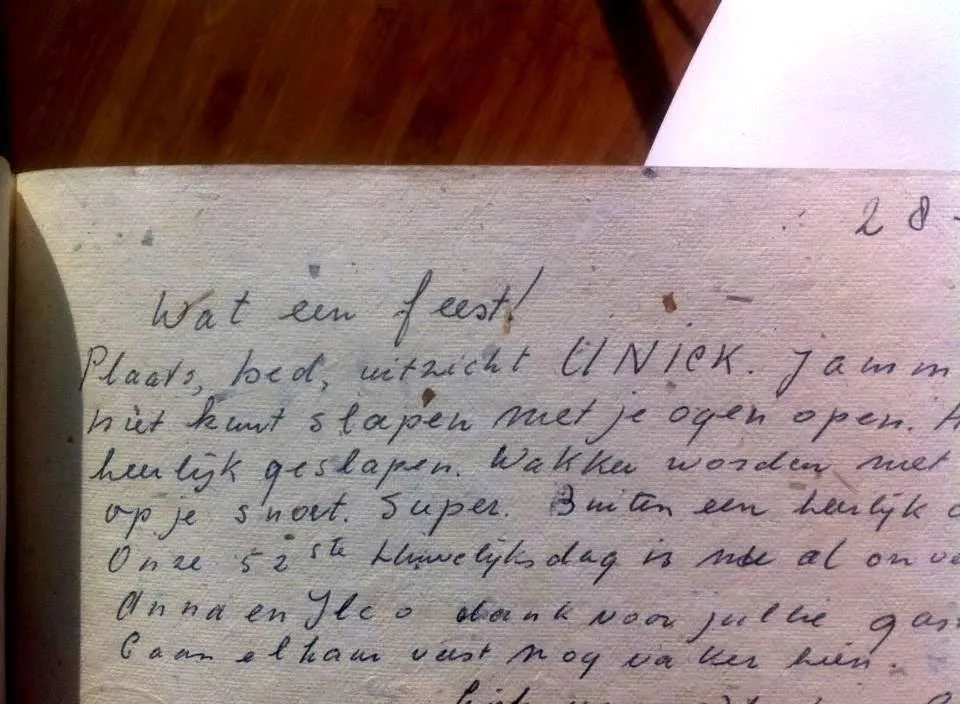 28-
Wat een feest!
Plaats, bed, uitzicht UNIEK. Jamm
niet kunt slapen met je ogen open. H
heerlijk geslapen. Wakker worden met
op je snoet. Super. Buiten een heerlijk
Onze 52ste huwelijksdag is nu al onve
Anna en dank voor jullie gas
elkaar vast nog vaker hier.